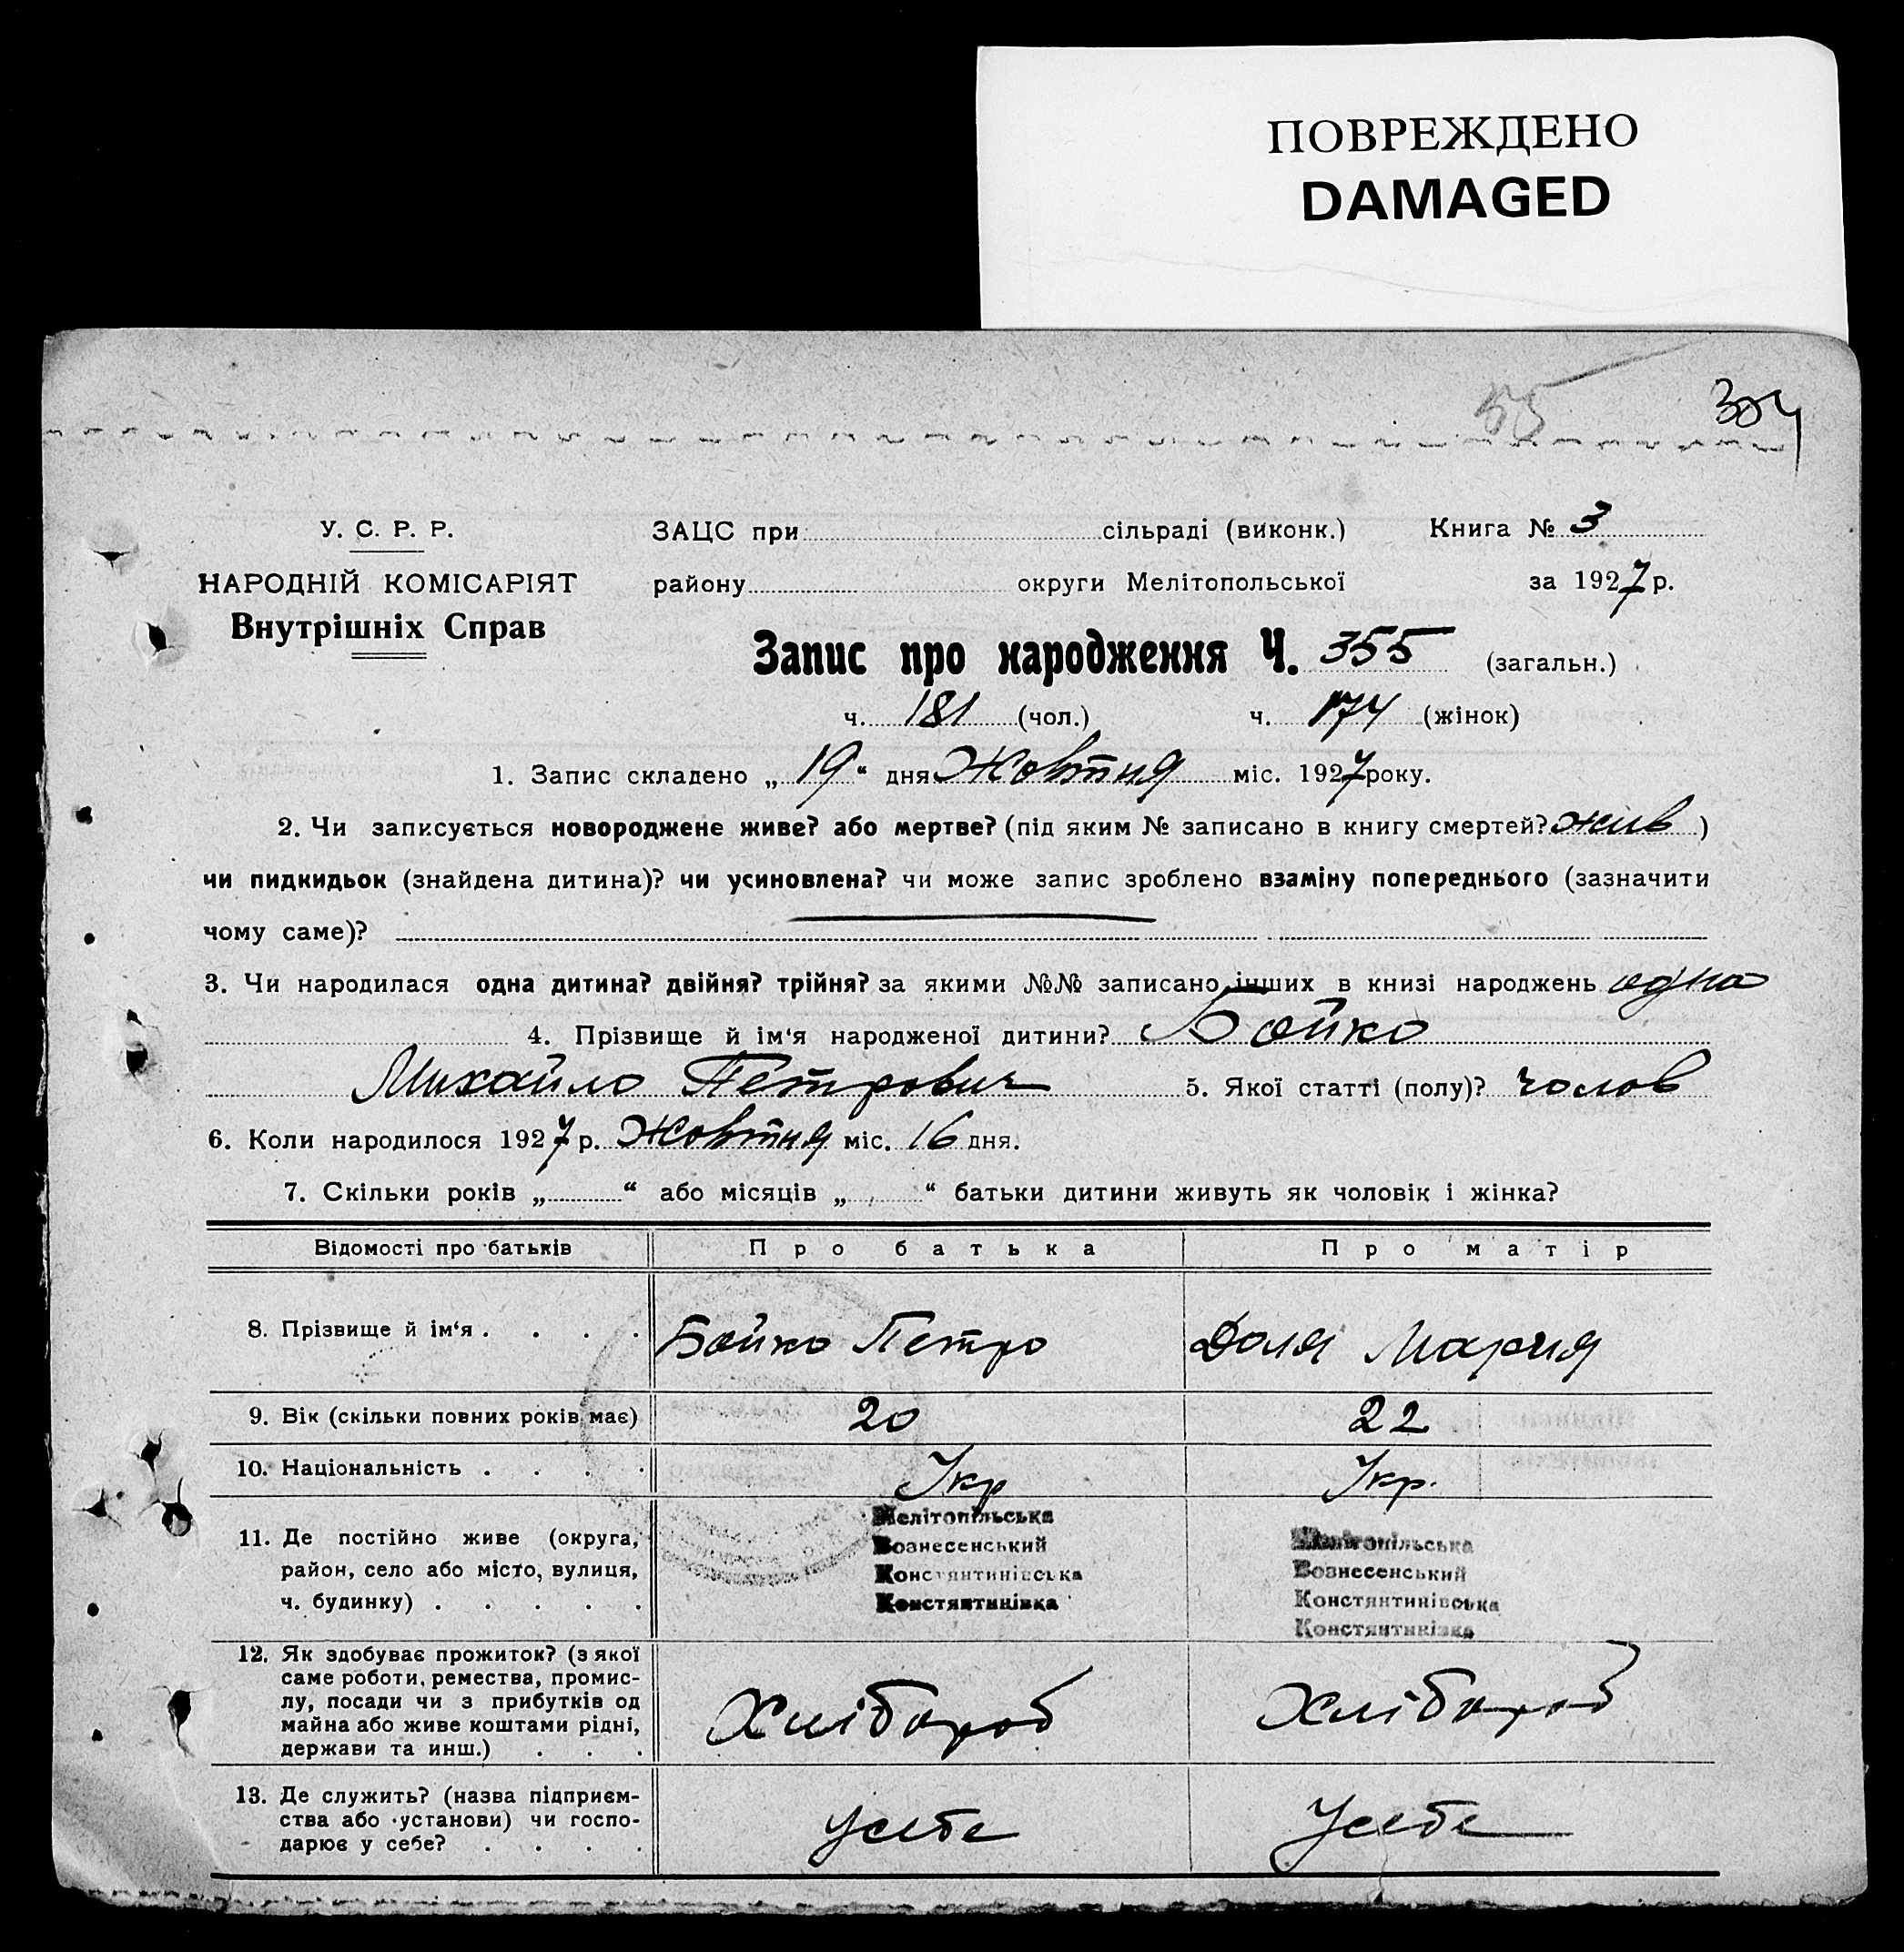 ПОВРЕЖДЕНО
DAMAGED
55
304
У. С. Р. Р.
НАРОДНІЙ КОМІСАРІЯТ
Внутрішніх Справ
ЗАЦС при сільраді (виконк.) Книга № 3
району округи Мелітопольської за 1927 р.
Запис про народження Ч. 355 (загальн.)
ч. 181 (чол.) ч. 174 (жінок)
1. Запис складено „ 19 “ дня Жовтня міс. 1927 року.
2. Чи записується новороджене живе? або мертве? (під яким № записано в книгу смертей? жив )
чи пидкидьок (знайдена дитина)? чи усиновлена? чи може запис зроблено взаміну попереднього (зазначити
чому саме)?
3. Чи народилася одна дитина? двійня? трійня? за якими №№ записано інших в книзі народжень одна
4. Прізвище й ім‘я народженої дитини? Бойко
Михайло Петрович 5. Якої статті (полу)? чолов
6. Коли народилося 1927 р. Жовтня міс. 16 дня.
7. Скільки років „ “ або місяців „ “ батьки дитини живуть як чоловік і жінка?
Відомості про батьків Про батька Про матір
8. Прізвище й ім‘я . . . . Бойко Петро Доля Мария
9. Вік (скільки повних років має) 20 22
10. Національність . . . . Укр Укр.
11. Де постійно живе (округа,
район, село або місто, вулиця,
ч. будинку) . . . . .
Мелітопільська
Вознесенський
Констянтинівська
Констянтинівка
Мелітопільська
Вознесенський
Констянтинівська
Констянтинівка
12. Як здобуває прожиток? (з якої
саме роботи, ремества, промис-
лу, посади чи з прибутків од
майна або живе коштами рідні,
держави та инш.) . . .
Хлібороб Хлібороб
13. Де служить? (назва підприєм-
ства або установи) чи госпо-
дарює у себе? . . . .
Усебе Усебе